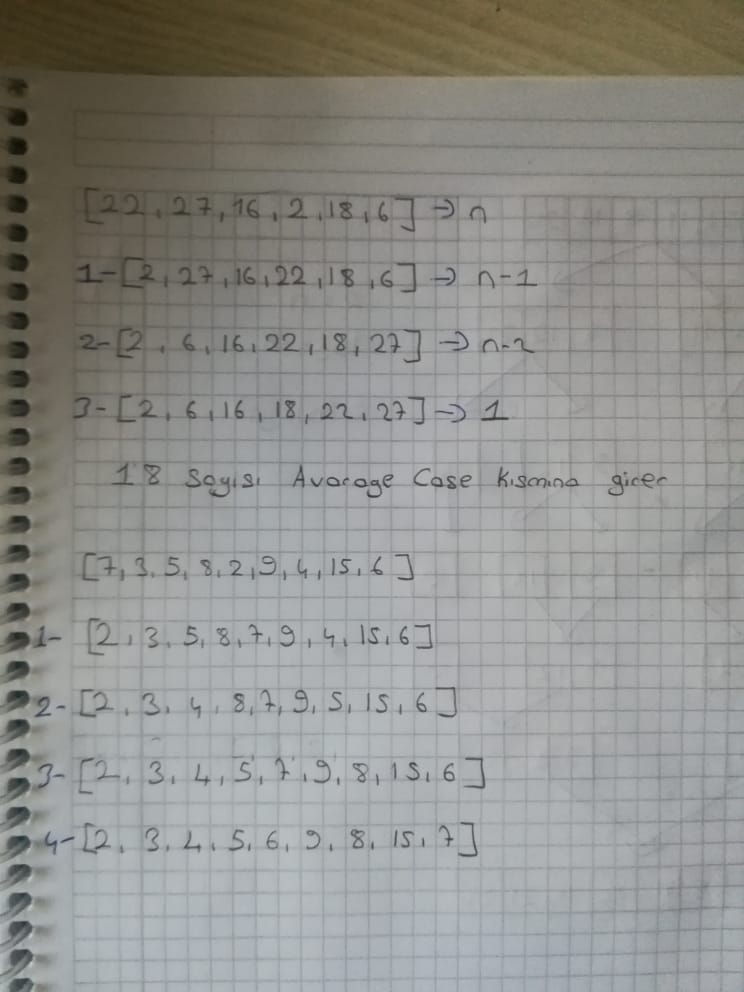 [22, 27, 16, 2, 18, 6] → n
1-[2, 27, 16, 22, 18, 6] → n-1
2-[2, 6, 16, 22, 18, 27] → n-2
3-[2, 6, 16, 18, 22, 27] → 1
18 Sayısı Avarage Case kısmına girer
[7, 3, 5, 8, 2, 9, 4, 15, 6]
1- [2, 3, 5, 8, 7, 9, 4, 15, 6]
2-[2, 3, 4, 8, 7, 9, 5, 15, 6]
3-[2, 3, 4, 5, 7, 9, 8, 15, 6]
4-[2, 3, 4, 5, 6, 9, 8, 15, 7]